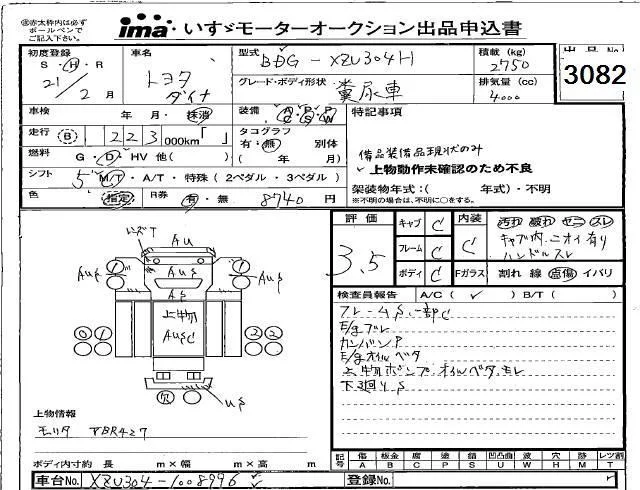 ※赤太枠内は必ず
ボールペンで
ご記入下さい。
ima いすゞモーターオークション出品申込書
初度登録
S・H・R
21/2月
車名
トヨタ
ダイナ
型式
BDG-XZU304H
グレード・ボディ形状
糞尿車
積載(kg)
2750
排気量(cc)
4000
出品No.
3082
車検 年・月・抹消
装備 A/C P/S P/W
走行 B 223000km「 」
タコグラフ
有・無 別体
( 年 月)
燃料 G・D・HV 他( )
シフト 5 M/T・A/T・特殊(2ペダル・3ペダル)
色 指定 R券 有・無 8740円
特記事項
備品装備品現状のみ
上物動作未確認のため不良
架装物年式:( 年式)・不明
※不明の場合は、不明に○をする。
評価
3.5
キャブ C
フレーム C
ボディ C
内装 C
Fガラス
汚れ 破れ ヤニ スレ
キャブ内ニオイ有り
ハンドルスレ
割れ 線 点傷 イバリ
検査員報告 A/C(✓) B/T( )
フレームS、一部C
E/gブレ
カンバンP
E/gオイルベタ
上物ポンプオイルベタ、モレ
下廻りS
レンズT
AU
AUS
1
1
AUS
AUS
AS
上物
AUSC
0 1
2 2
欠
US
上物情報
モリタ VBR427
ボディ内寸約 長 m×幅 m×高 m
車台No. XZU304-1008996
登録No.
記号 傷 板金 腐 塗 錆 凹凸曲 波 穴 跡 レツ割
A B C P S U W H M T